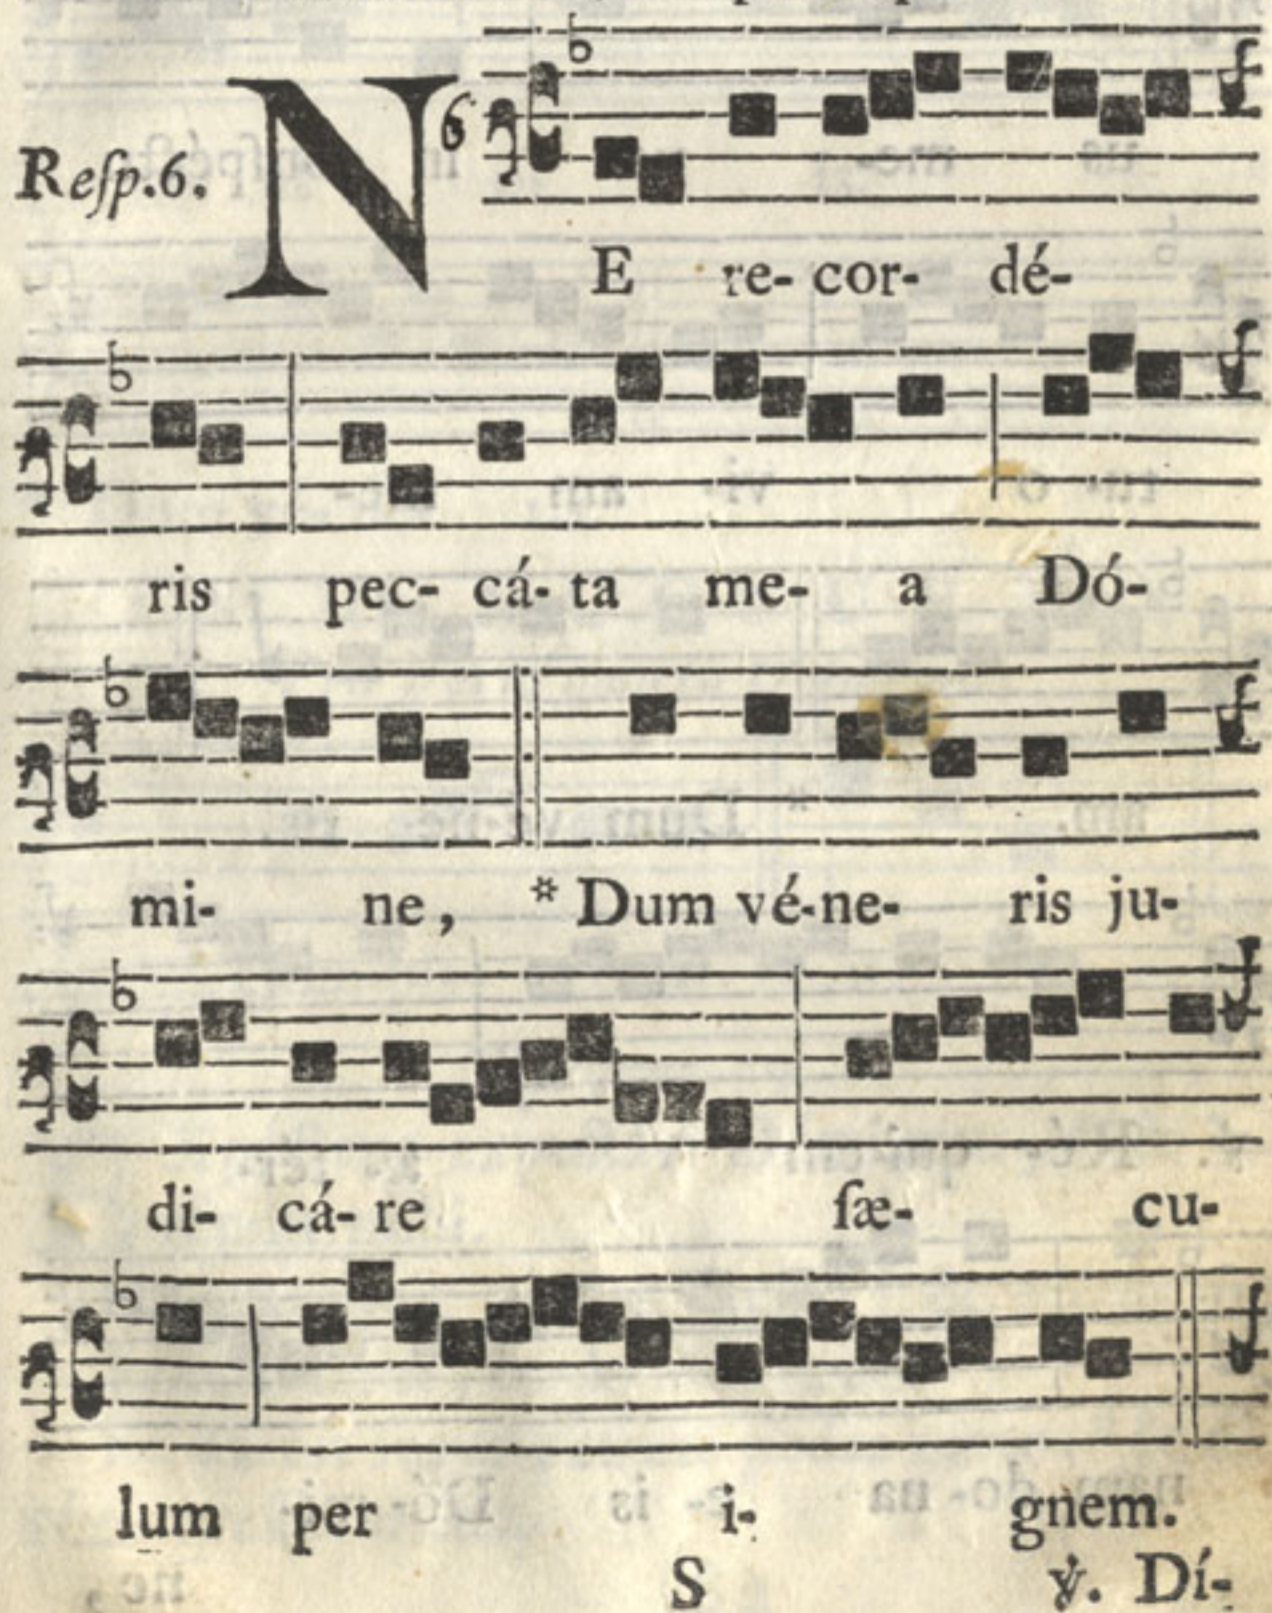 Reſp.6. N 6
E re- cor- dé-
ris pec- cá- ta me- a Dó-
mi- ne, * Dum vé-ne- ris ju-
di- cá- re ſæ- cu-
lum per i- gnem.
S ℣. Dí-